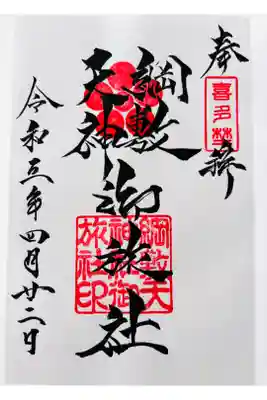 奉拝
喜多埜
綱敷
天神
御旅社
綱敷天
神御
旅社印
令和三年四月廿二日